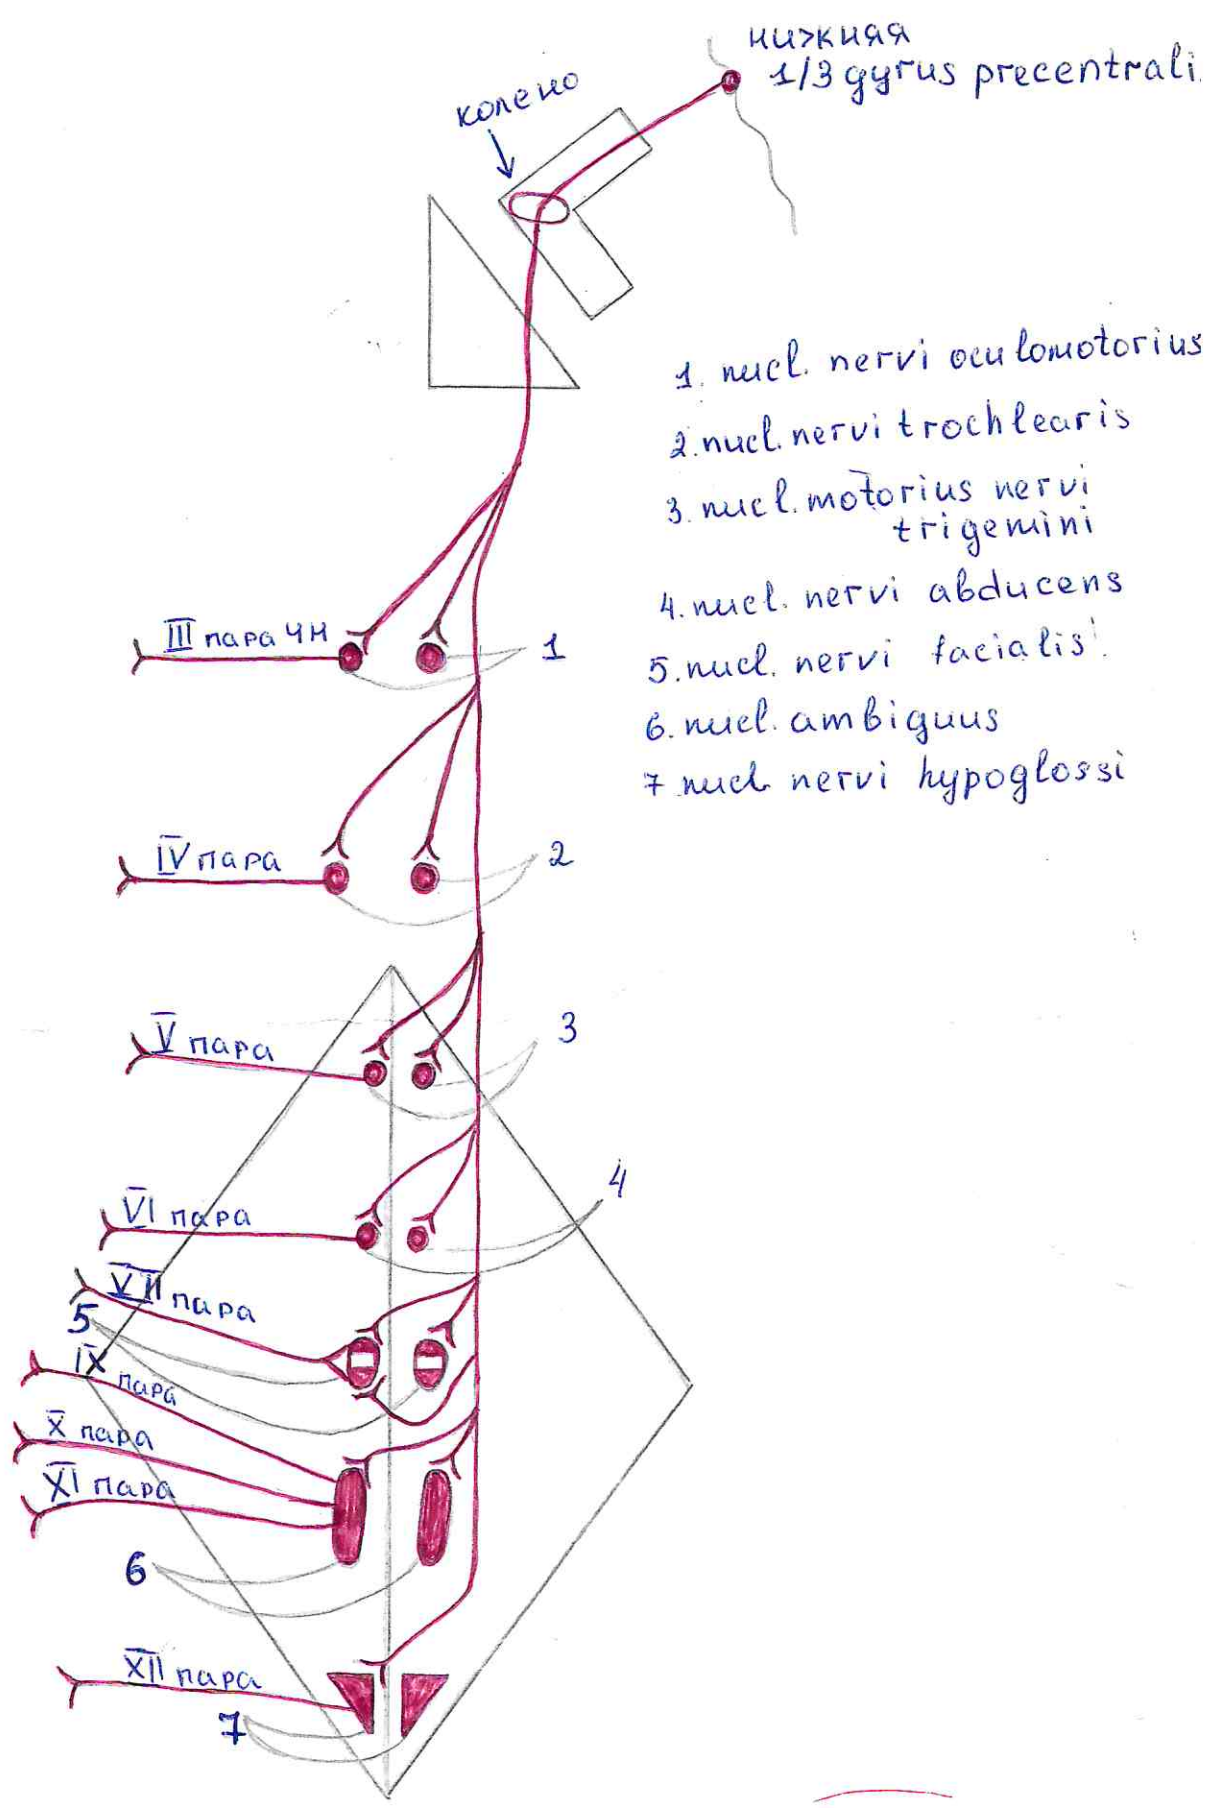 нижняя
1/3 gyrus precentrali
колено
1. nucl. nervi oculomotorius
2. nucl. nervi trochlearis
3. nucl. motorius nervi
trigemini
4. nucl. nervi abducens
5. nucl. nervi facialis
6. nucl. ambiguus
7 nucl. nervi hypoglossi
III пара ЧН
1
IV пара
2
V пара
3
VI пара
4
VII пара
5
IX пара
X пара
XI пара
6
XII пара
7